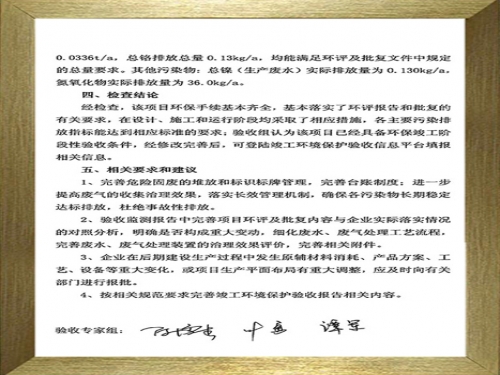 0.0336t/a，总铬排放总量 0.13kg/a，均能满足环评及批复文件中规定
的总量要求。其他污染物：总镍（生产废水）实际排放量为 0.130kg/a，
氮氧化物实际排放量为 36.0kg/a。
四、检查结论
经检查，该项目环保手续基本齐全，基本落实了环评报告和批复的
有关要求，在设计、施工和运行阶段均采取了相应措施，各主要污染排
放指标能达到相应标准的要求；验收组认为该项目已经具备环保竣工阶
段性验收条件，经修改完善后，可登陆竣工环境保护验收信息平台填报
相关信息。
五、相关要求和建议
1、完善危险固废的堆放和标识标牌管理，完善台账制度；进一步
提高废气的收集治理效果，落实长效管理机制，确保各污染物长期稳定
达标排放，杜绝事故性排放。
2、验收监测报告中完善项目环评及批复内容与企业实际落实情况
的对照分析，明确是否构成重大变动，细化废水、废气处理工艺流程，
完善废水、废气处理装置的治理效果评价，完善相关附件。
3、企业在后期建设生产过程中发生原辅材料消耗、产品方案、工
艺、设备等重大变化，或项目生产平面布局有重大调整，应及时向有关
部门进行报批。
4、按相关规范要求完善竣工环境保护验收报告相关内容。
验收专家组：